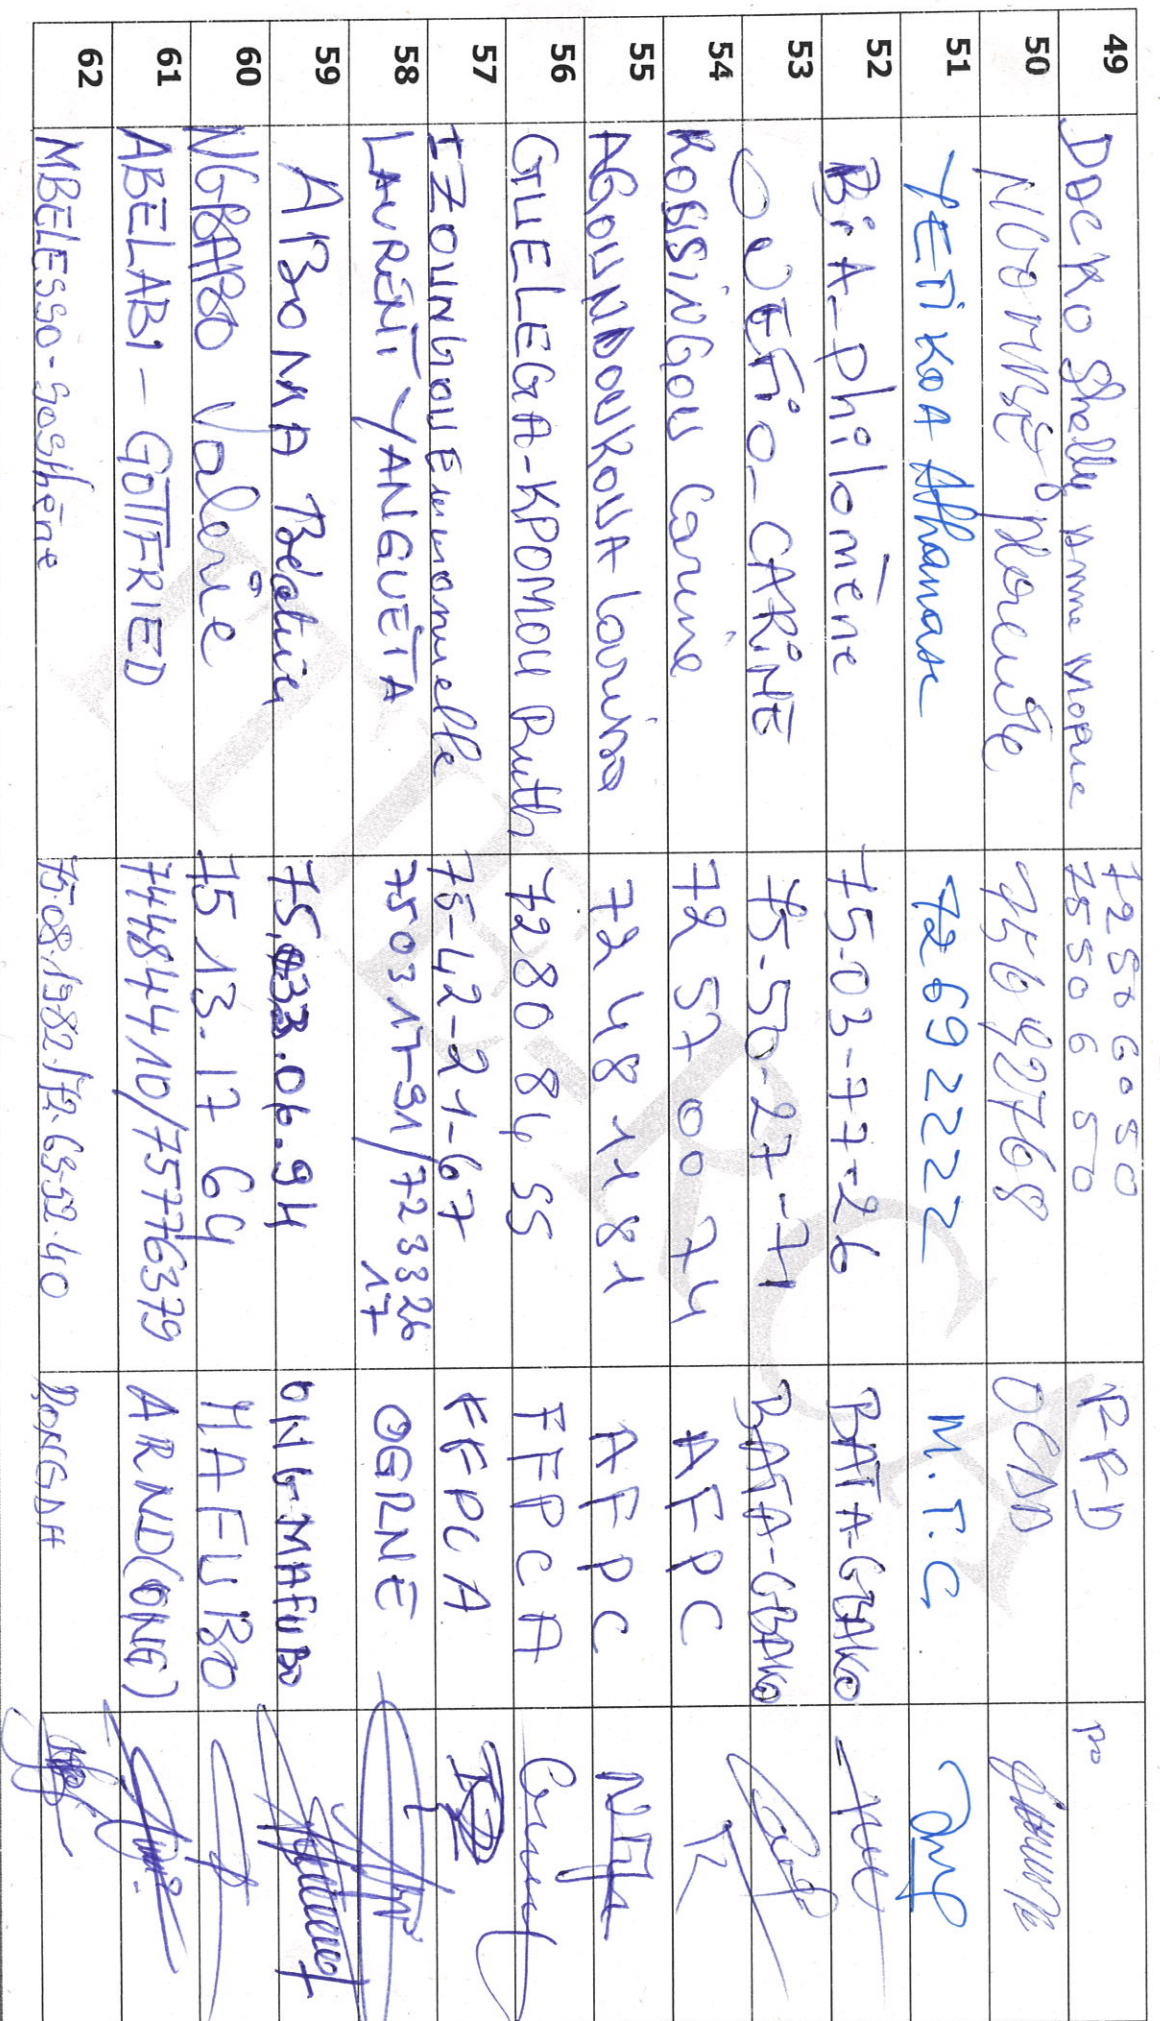 49 DACKO Shelly Anne Marie 72506050 7550650 RFD po
50 Florence 75642768 OCDD
51 YETIKOA Athanase 72692222 M.T.C
52 BiA-philomène 75-03-77-26 BATA-GBAKO
53 OUEFIO-CARINE 75-50-27-71 BATA-GBAKO
54 KOBISINGOU Carine 72 57 00 74 AFPC
55 AGOUNDOUKOUA Louise 72 48 11 81 AFPC
56 GUELEGA-KPOMOU Ruth 72808455 FFPCA
57 IZOUNGOU Emmanuelle 75-42-21-67 FFPCA
58 LAURENT YANGUETA 75031791/72332617 OGRNE
59 ABOMA Béatrice 75.033.06.94 ONG-MAFUBO
60 NGBABO Valérie 75 13.17 64 MAFUBO
61 ABELABI-GOTTFRIED 74484410/75776379 ARND(ONG)
62 MBELESSO-Sosthène 75.08.1982./72.69.52.40